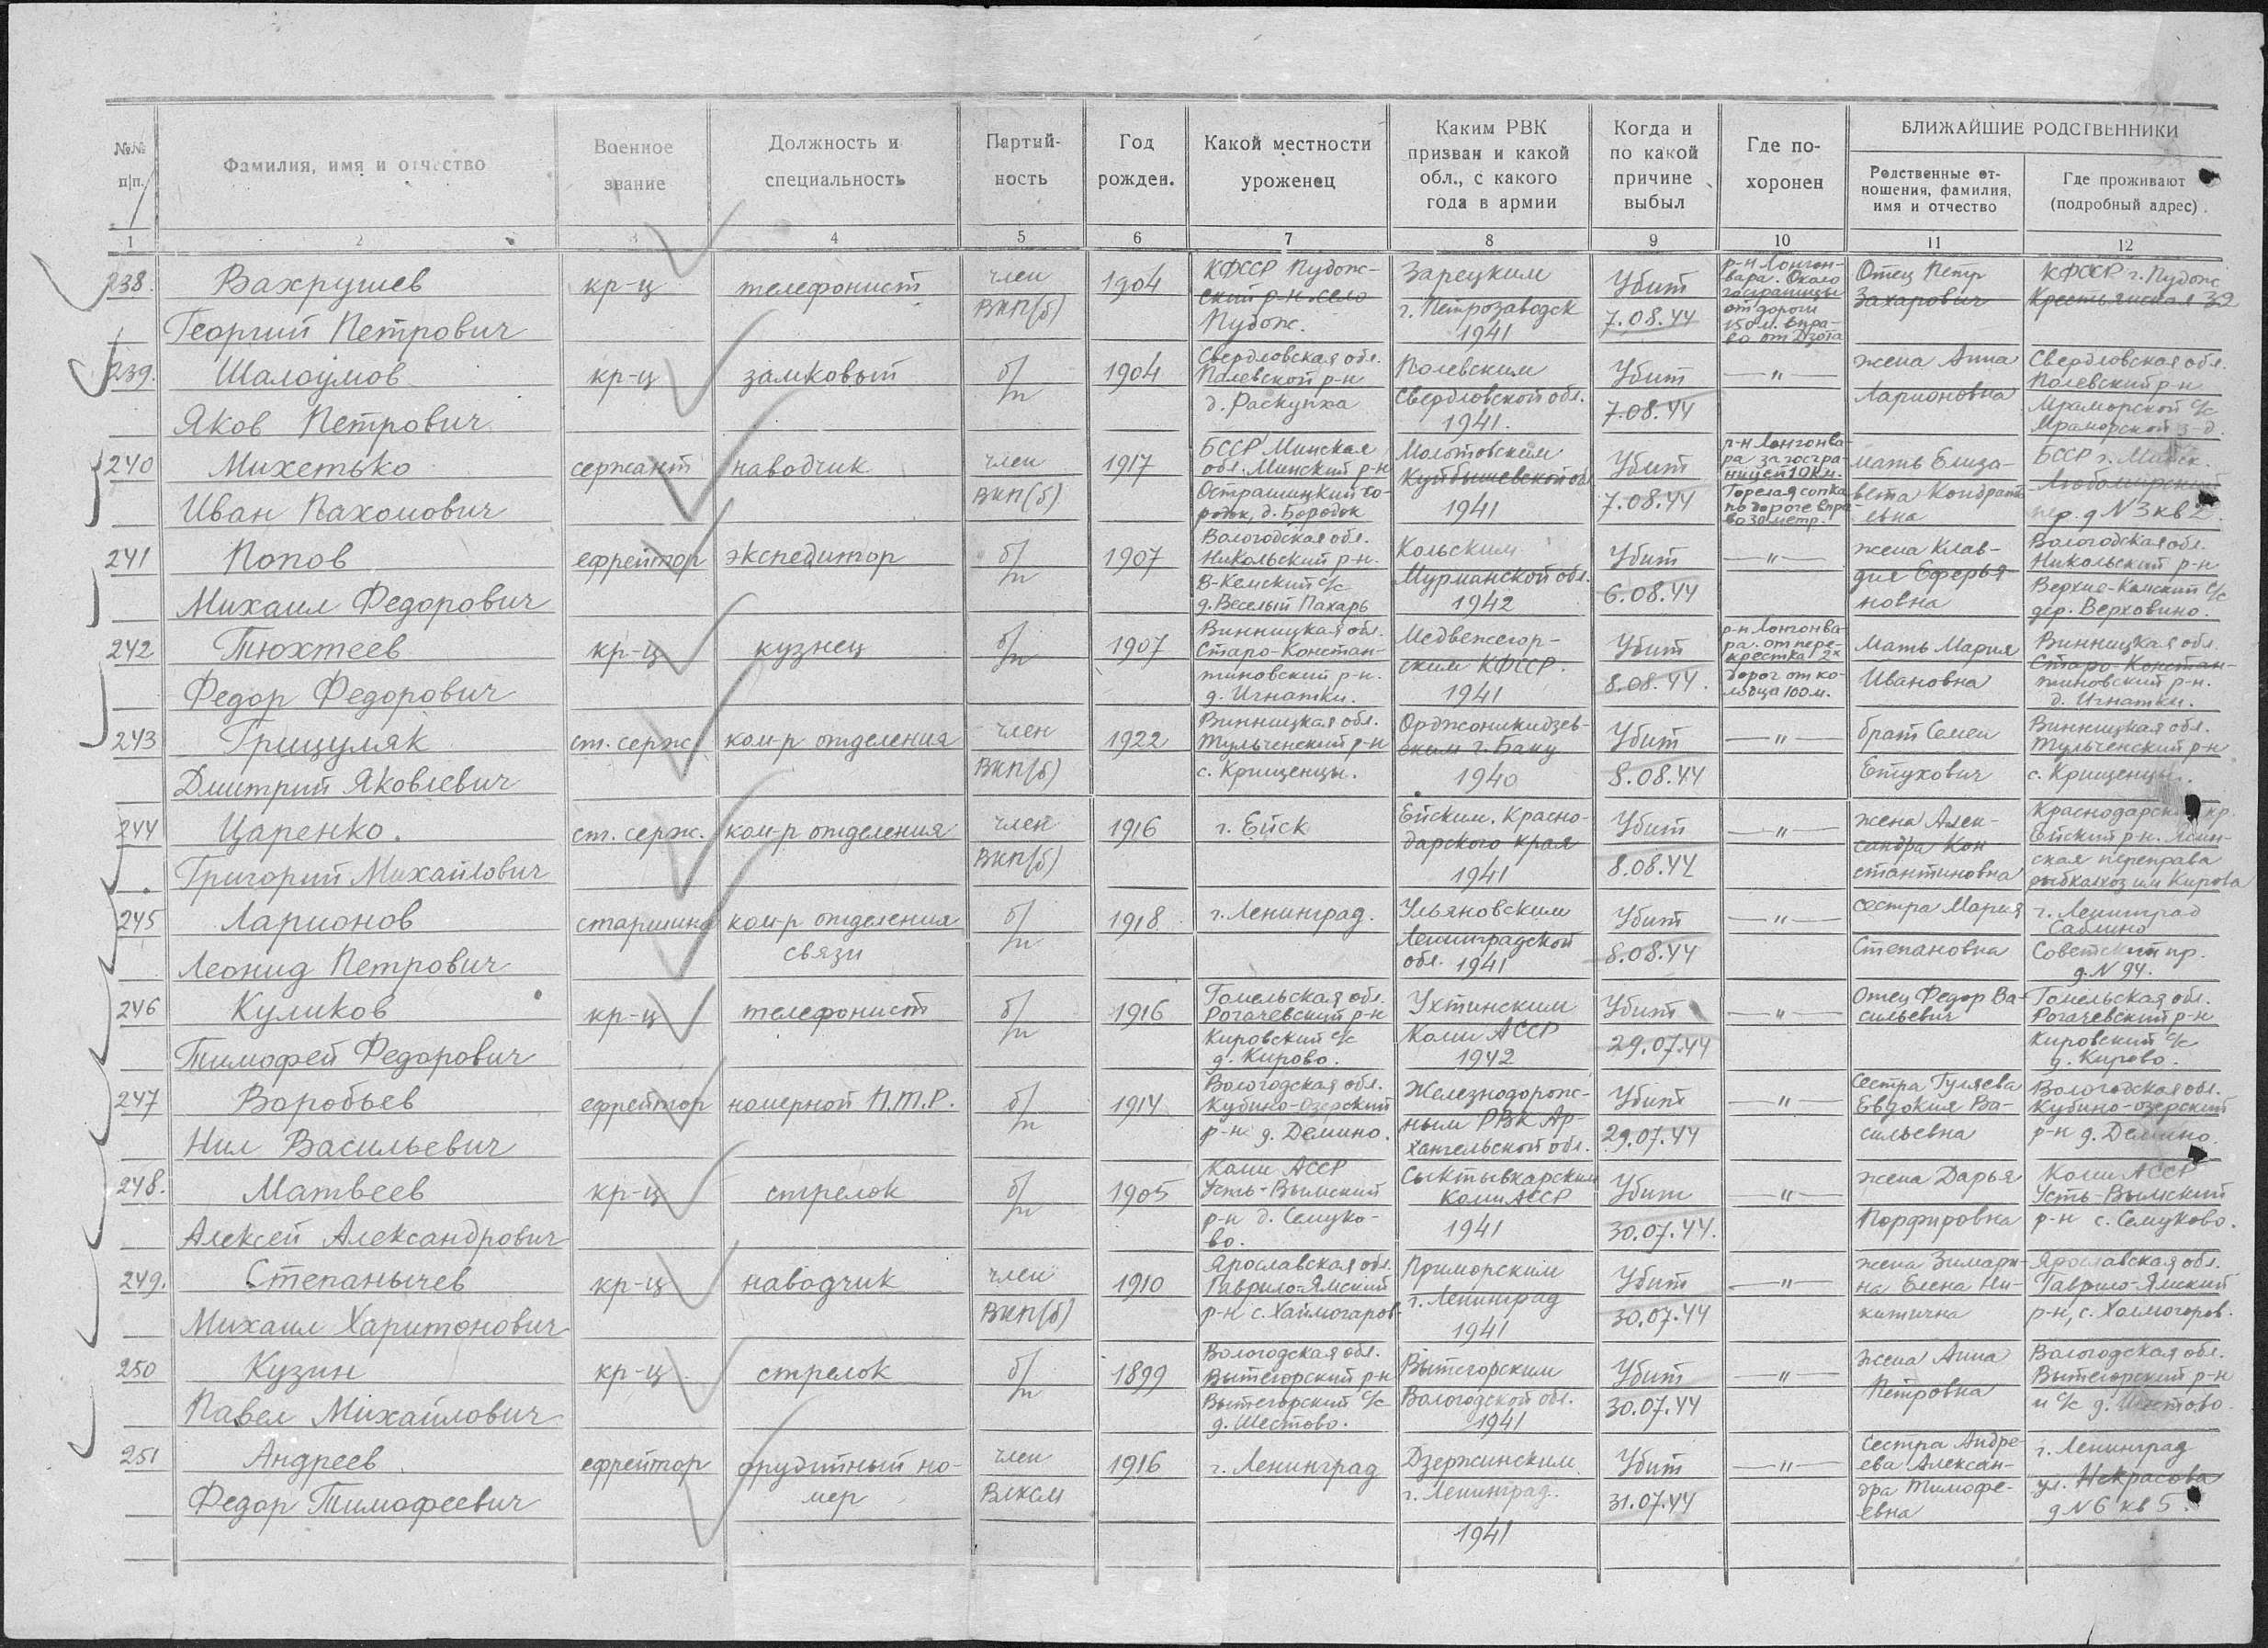 №№ п/п.
Фамилия, имя и отчество
Военное звание
Должность и специальность
Партий-ность
Год рожден.
Какой местности уроженец
Каким РВК призван и какой обл., с какого года в армии
Когда и по какой причине выбыл
Где по-хоронен
БЛИЖАЙШИЕ РОДСТВЕННИКИ
Родственные от-ношения, фамилия, имя и отчество
Где проживают (подробный адрес)
1 2 3 4 5 6 7 8 9 10 11 12
238. Вахрушев Георгий Петрович
кр-ц
телефонист
член ВКП(б)
1904
КФССР Пудож-
ский р-н село
Пудож.
Зарецким
г. Петрозаводск
1941
Убит
7.08.44
р-н Лонгон-
вара. Около
госграницы
от дороги
150 м. впра-
во от Дзота
Отец Петр
Захарович
КФССР г. Пудож
Крестьянская 32
239. Шалоумов Яков Петрович
кр-ц
замковый
б/п
1904
Свердловская обл.
Полевской р-н
д. Раскуиха
Полевским
Свердловской обл.
1941.
Убит
7.08.44
—"—
жена Анна
Ларионовна
Свердловская обл.
Полевский р-н
Мраморской с/с
Мраморской з-д.
240 Михетько Иван Пахомович
сержант
наводчик
член ВКП(б)
1917
БССР Минская
обл. Минский р-н
Острашицкий го-
родок, д. Бородок
Молотовским
Куйбышевской обл
1941
Убит
7.08.44
р-н Лонгонва-
ра за госгра-
ницей 10 км.
Горелая сопка
по дороге впра-
во 30 метр.
мать Елиза-
вета Кондрать
евна
БССР г. Минск.
пер. д N 3 кв 2.
241 Попов Михаил Федорович
ефрейтор
экспедитор
б/п
1907
Вологодская обл.
Никольский р-н.
В-Кемский с/с
д. Веселый Пахарь
Кольским
Мурманской обл.
1942
Убит
6.08.44
—"—
жена Клав-
дия Еферья
новна
Вологодская обл.
Никольский р-н
Верхне-Кемский с/с
дер. Верховино.
242 Тюхтеев Федор Федорович
кр-ц
кузнец
б/п
1907
Винницкая обл.
Старо-Констан-
тиновский р-н.
д. Игнатки.
Медвежегор-
ским КФССР.
1941
Убит
8.08.44.
р-н Лонгонва-
ра. от пере-
крестка 2х
дорог от ко-
лодца 100 м.
Мать Мария
Ивановна
Винницкая обл.
Старо-Констан-
тиновский р-н.
д. Игнатки.
243 Грицуляк Дмитрий Яковлевич
ст. серж.
ком-р отделения
член ВКП(б)
1922
Винницкая обл.
Тульченский р-н
с. Крищенцы.
Орджоникидзев-
ским г. Баку
1940
Убит
8.08.44
—"—
брат Семен
Етухович
Винницкая обл.
Тульченский р-н
с. Крищенцы.
244 Царенко. Григорий Михайлович
ст. серж.
ком-р отделения
член ВКП(б)
1916
г. Ейск
Ейским. Красно-
дарского края
1941
Убит
8.08.44
—"—
жена Алек-
сандра Кон
стантиновна
Краснодарский кр.
Ейский р-н. Ясен-
ская переправа
рыбколхоз им Кирова
245 Ларионов Леонид Петрович
старшина
ком-р отделения
связи
б/п
1918
г. Ленинград.
Ульяновским
Ленинградской
обл. 1941
Убит
8.08.44
—"—
сестра Мария
Степановна
г. Ленинград
Саблино
Советский пр.
д. N 94.
246 Куликов Тимофей Федорович
кр-ц
телефонист
б/п
1916
Гомельская обл.
Рогачевский р-н
Кировский с/с
д. Кирово.
Ухтинским
Коми АССР
1942
Убит
29.07.44
—"—
Отец Федор Ва-
сильевич
Гомельская обл.
Рогачевский р-н
Кировский с/с
д. Кирово.
247 Воробьев Нил Васильевич
ефрейтор
номерной П.Т.Р.
б/п
1914
Вологодская обл.
Кубино-Озерский
р-н д. Демино.
Железнодорож-
ным РВК Ар-
хангельской обл.
Убит
29.07.44
—"—
Сестра Гуляева
Евдокия Ва-
сильевна
Вологодская обл.
Кубино-озерский
р-н д. Демино.
248. Матвеев Алексей Александрович
кр-ц
стрелок
б/п
1905
Коми АССР
Усть-Вымский
р-н д. Семуко-
во.
Сыктывкарским
Коми АССР
1941
Убит
30.07.44.
—"—
жена Дарья
Порфировна
Коми АССР
Усть-Вымский
р-н с. Семуково.
249. Степанычев Михаил Харитонович
кр-ц
наводчик
член ВКП(б)
1910
Ярославская обл.
Гаврило-Ямский
р-н с. Хаймогаров
Приморским
г. Ленинград
1941
Убит
30.07.44
—"—
жена Зимари-
на Елена Ни-
китична
Ярославская обл.
Гаврило-Ямский
р-н, с. Холмогоров.
250 Кузин Павел Михайлович
кр-ц
стрелок
б/п
1899
Вологодская обл.
Вытегорский р-н
Вытегорский с/с
д. Шестово.
Вытегорским
Вологодской обл.
1941
Убит
30.07.44
—"—
жена Анна
Петровна
Вологодская обл.
Вытегорский р-н
и с/с д. Шестово.
251 Андреев Федор Тимофеевич
ефрейтор
орудийный но-
мер
член ВЛКСМ
1916
г. Ленинград
Дзержинским
г. Ленинград.
1941
Убит
31.07.44
—"—
Сестра Андре-
ева Алексан-
дра Тимофе-
евна
г. Ленинград
ул. Некрасова
д N 6 кв 5.